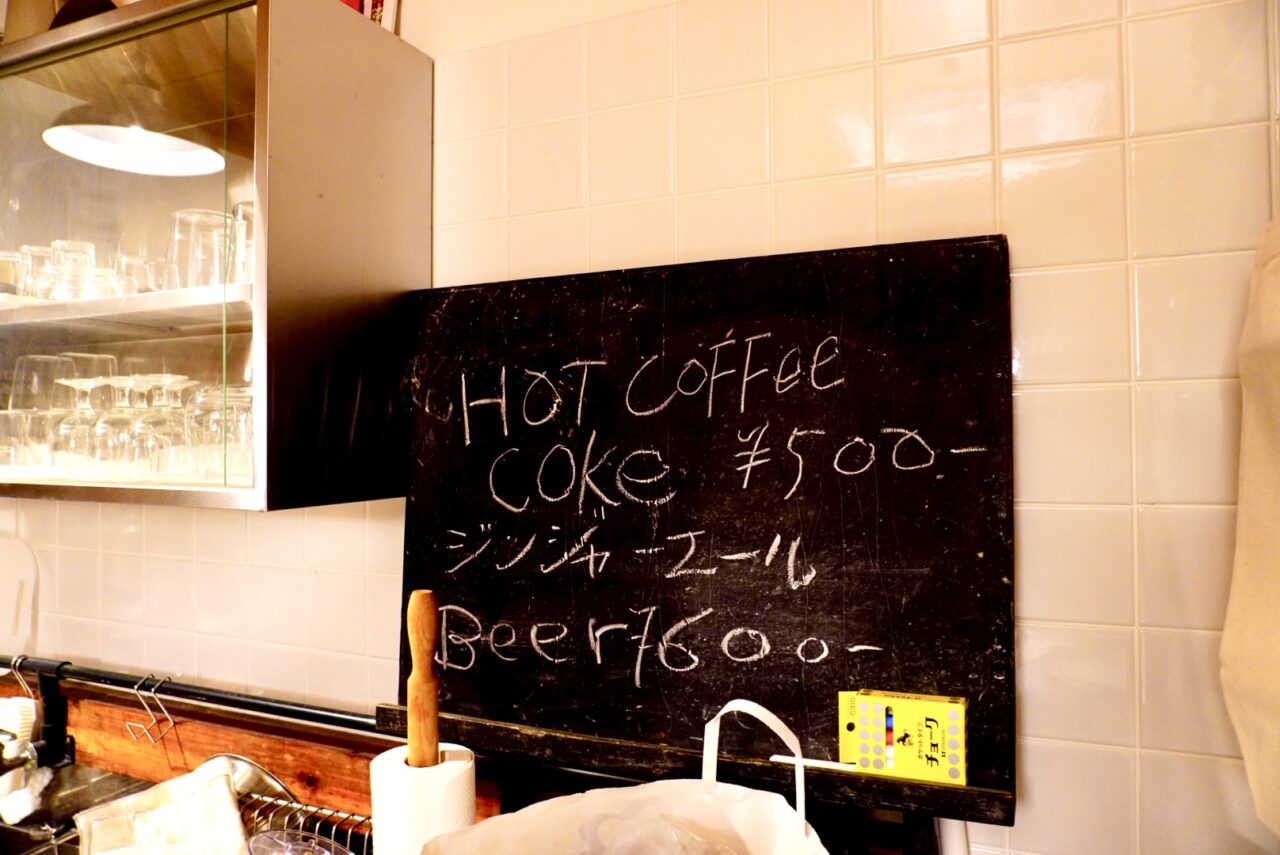 HOT COFFee
COKe ¥500-
ジンジャーエール
Beer ¥600-